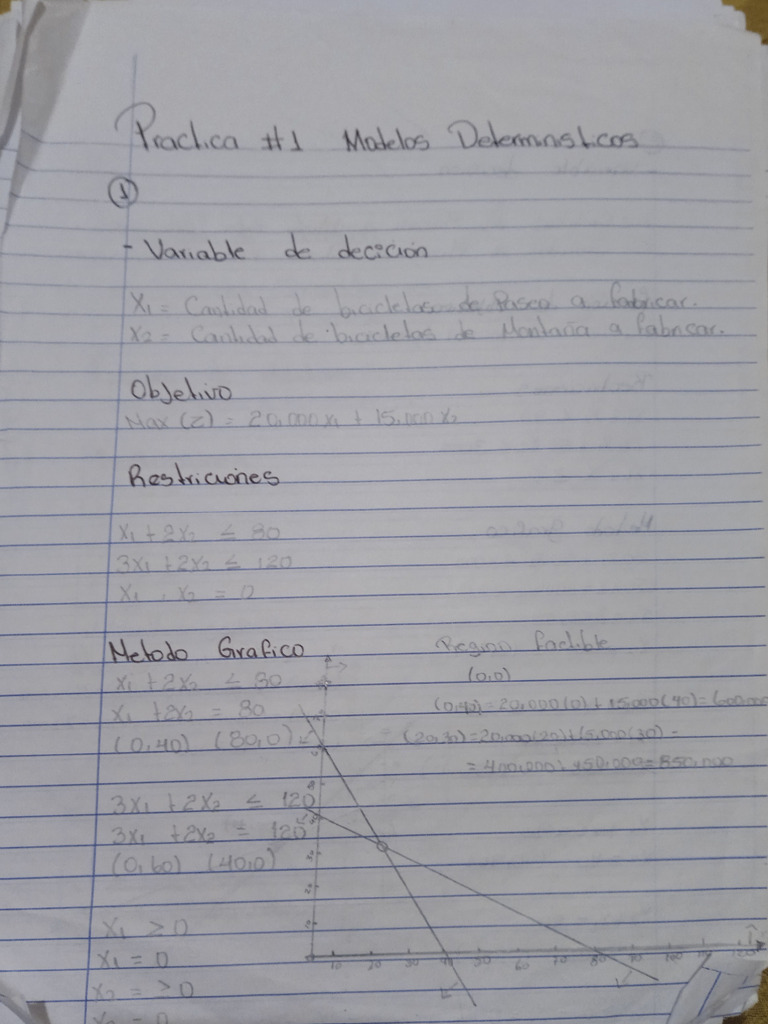 Practica #1 Modelos Deterministicos
①
- Variable de decicion
X1 = Cantidad de bicicletas de Paseo a fabricar.
X2 = Cantidad de bicicletas de Montaña a fabricar.
Objetivo
Max (Z) = 20,000x1 + 15,000x2
Restriciones
x1 + 2x2 ≤ 80
3x1 + 2x2 ≤ 120
x1 , x2 = 0
Metodo Grafico
x1 + 2x2 ≤ 80
x1 + 2x2 = 80
(0,40) (80,0)
3x1 + 2x2 ≤ 120
3x1 + 2x2 = 120
(0,60) (40,0)
x1 > 0
x1 = 0
x2 = > 0
x2 = 0
Region factible
(0,0)
(0,40) = 20,000(0) + 15,000(40) = 600,000
(20,30) = 20,000(20) + 15,000(30) =
= 400,000 + 450,000 = 850,000
10 20 30 40 50 60 70 80 90 100 110 120